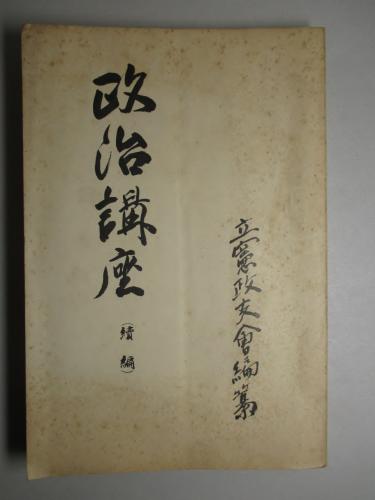 立憲政友會編纂
政治講座
(續編)